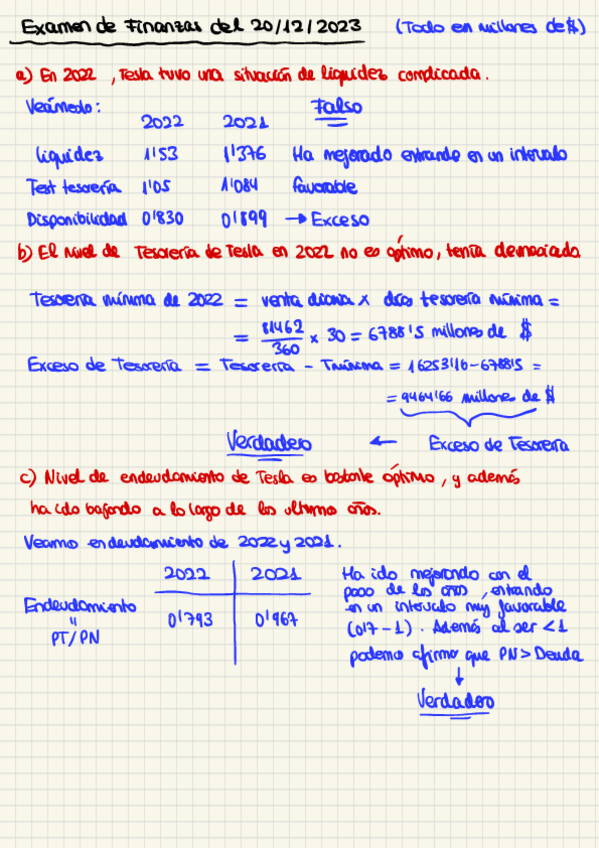 Examen de Finanzas del 20/12/2023 (Todo en millones de $)
a) En 2022, Tesla tuvo una situación de liquidez complicada.
Veámoslo: Falso
2022 2021
liquidez 1'53 1'376 Ha mejorado entrando en un intervalo
Test tesorería 1'05 1'084 favorable
Disponibilidad 0'830 0'899 → Exceso
b) El nivel de Tesorería de Tesla en 2022 no es óptimo, tenía demasiada
Tesorería mínima de 2022 = venta diaria x días tesorería mínima =
= 81462/360 x 30 = 6788'5 millones de $
Exceso de Tesorería = Tesorería - Tmínima = 16253'16-6788'5 =
= 9464'66 millones de $
Verdadero ← Exceso de Tesorería
c) Nivel de endeudamiento de Tesla es bastante óptimo, y además
ha ido bajando a lo largo de los ultimos años.
Veamos endeudamiento de 2022 y 2021.
2022 2021
Endeudamiento 0'793 0'967
"
PT/PN
Ha ido mejorando con el
paso de los años, entrando
en un intervalo muy favorable
(0'7-1). Además al ser <1
podemos afirmar que PN> Deuda
↓
Verdadero